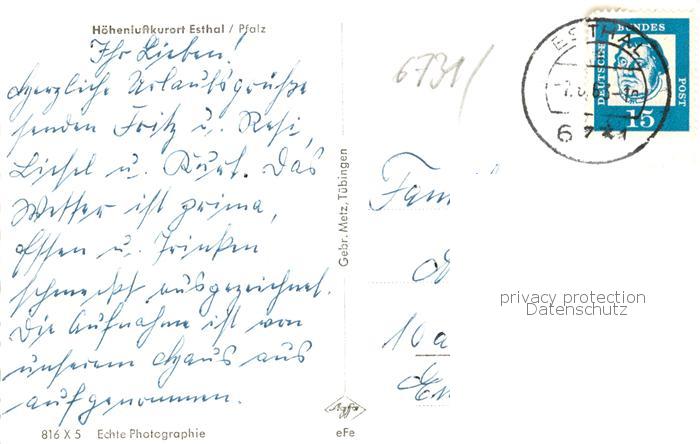 Höhenluftkurort Esthal / Pfalz
Ihr Lieben!
Herzliche Urlaubsgrüße
senden Fritz u. Resi,
Liesel u. Kurt. Das
Wetter ist prima,
Essen u. Trinken
schmeckt ausgezeichnet.
Die Aufnahme ist von
unserem Haus aus
aufgenommen.
816 X 5 Echte Photographie
Gebr. Metz, Tübingen
Agfa
eFe
6731/
ESTHAL
6731
DEUTSCHE
BUNDES
POST
15
Fam
10a
privacy protection
Datenschutz